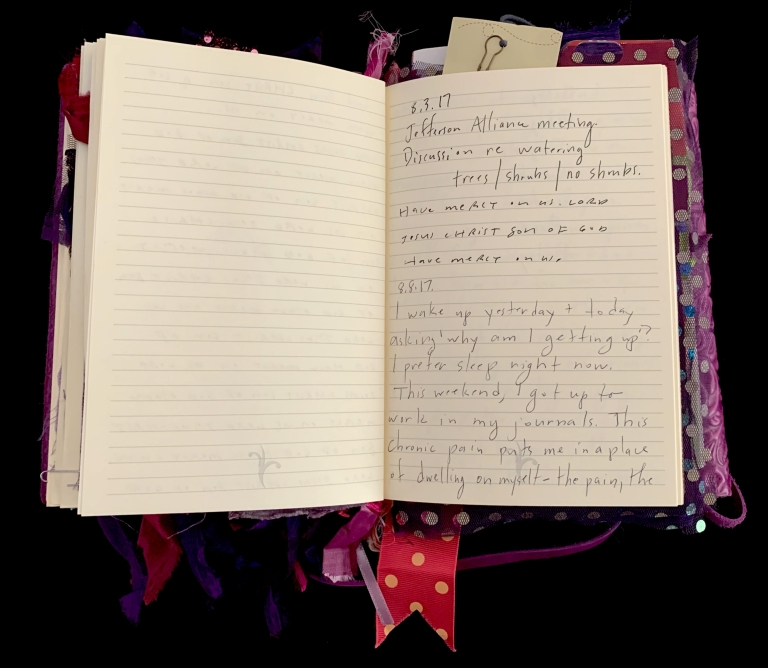 8.3.17
Jefferson Alliance meeting.
Discussion re watering
trees / shrubs / no shrubs.
Have mercy on us. Lord
Jesus Christ Son of God
Have mercy on us.
8.8.17.
I wake up yesterday + today
asking "why am I getting up"?
I prefer sleep right now.
This weekend, I got up to
work in my journals. This
chronic pain puts me in a place
of dwelling on myself - the pain, the